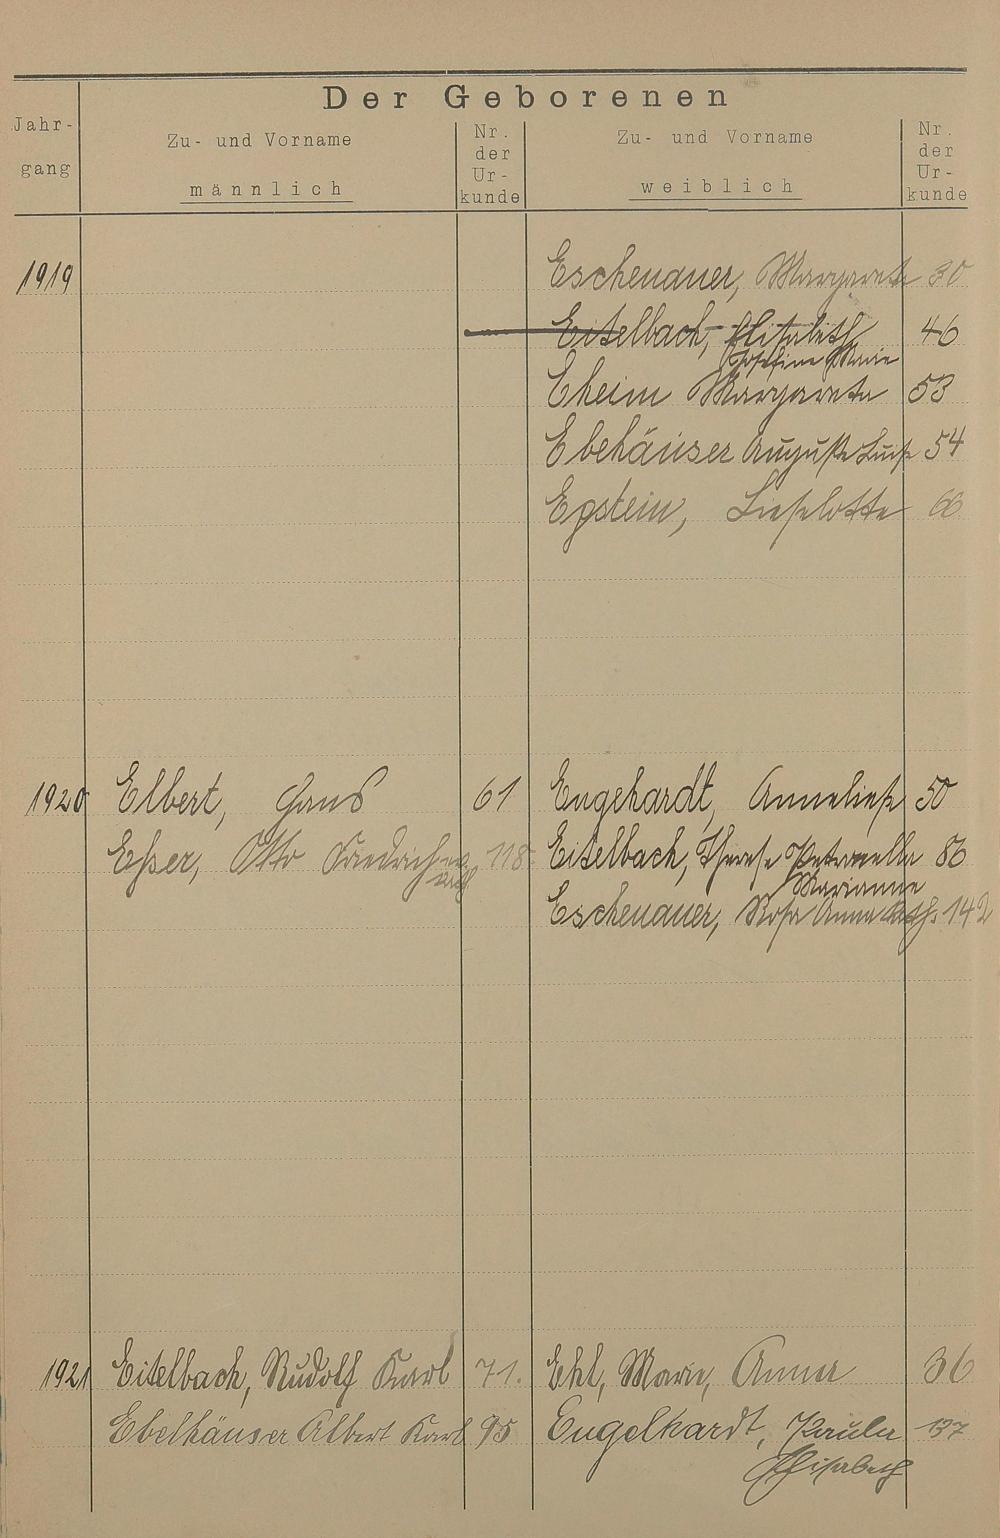 Der Geborenen
Jahr-
gang
Zu- und Vorname
männlich
Nr.
der
Ur-
kunde
Zu- und Vorname
weiblich
Nr.
der
Ur-
kunde
1919
Eschenauer, Margarete 30
Eitelbach, Elisabeth 46
Josefine Marie
Eheim Margareta 53
Ebehäuser Auguste Luise 54
Epstein, Lieselotte 66
1920 Elbert, Hans 61 Engehardt, Anneliese 50
Esser, Otto Friedrich 118 Eitelbach, Therese Petronella 86
Marianne
Eschenauer, Rosa Anna Kath. 142
1921 Eitelbach, Rudolf Karl 71. Ehl, Marie, Anna 36
Ebelhäuser Albert Karl 95 Engelhardt, Paula 137
Elisabeth